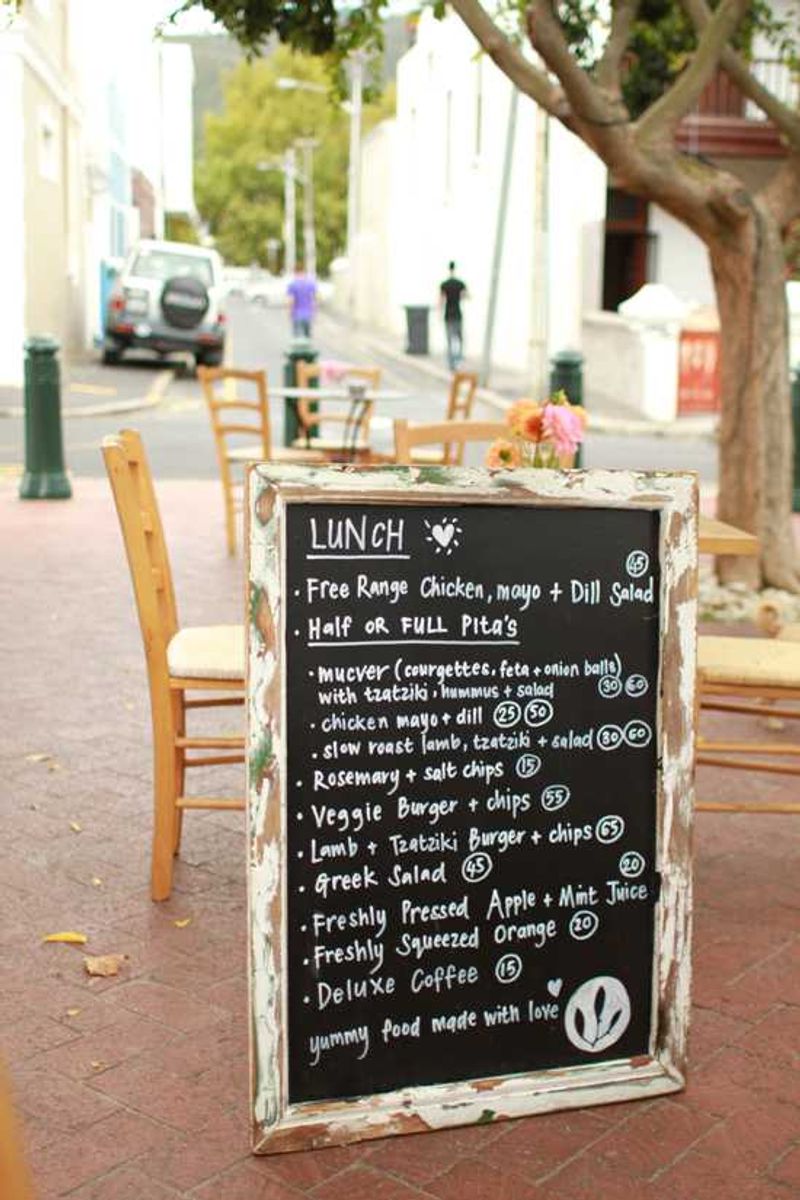 LUNCH
45
· Free Range Chicken, mayo + Dill Salad
· Half OR FULL Pita's
· mucver (courgettes, feta + onion balls)
with tzatziki, hummus + salad 30 60
· chicken mayo + dill 25 50
· slow roast lamb, tzatziki + salad 30 60
· Rosemary + salt chips 15
· Veggie Burger + chips 55
· Lamb + Tzatziki Burger + chips 65
· Greek Salad 45
20
· Freshly Pressed Apple + Mint Juice
· Freshly Squeezed Orange 20
· Deluxe Coffee 15
yummy food made with love